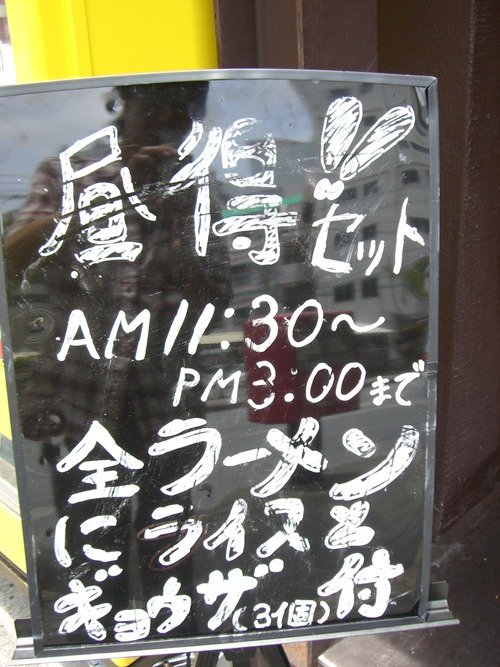 昼得!!セット
AM11:30〜
PM3:00まで
全ラーメン
にライスと
ギョウザ(3個)付